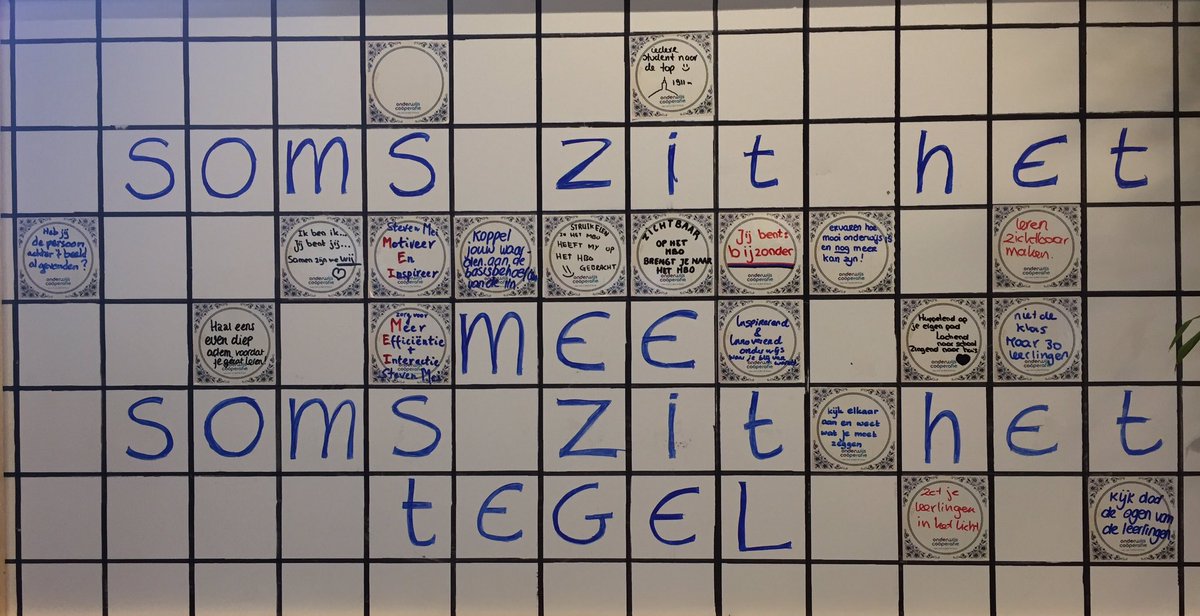 iedere
student naar
de top
1911m
onderwijs
coöperatie
onderwijs
coöperatie
soms zit het
Heb jij
de persoon
achter 't beeld
al gevonden?
Ik ben ik...
Jij bent jij...
Samen zijn we Wij
Steven Mei
Motiveer
En
Inspireer
Koppel
jouw waar-
den aan de
basisbehoeften
van de lln.
STRUIKELEN
IN HET MBO
HEEFT MY OP
HET HBO
GEBRACHT
ZICHTBAAR
OP HET
MBO
BRENGT JE NAAR
HET HBO
Jij bent
bijzonder
ervaren hoe
mooi onderwijs is
en nog meer
kan zijn!
leren
zichtbaar
maken.
Haal eens
even diep
adem, voordat
je gaat leren!
zorg voor
Meer
Efficiëntie
+
Interactie
Steven Mei
MEE
Inspirerend
&
Innoverend
onderwijs
Huppelend op
je eigen pad
Lachend
naar school
Zingend naar huis
niet de
klas
Maar 30
leerlingen
soms zit het
kijk elkaar
aan en weet
wat je moet
zeggen
onderwijs
coöperatie
tEGEL
Zet je
leerlingen
in het licht!
onderwijs
coöperatie
Kijk door
de ogen van
de leerlingen
onderwijs
coöperatie